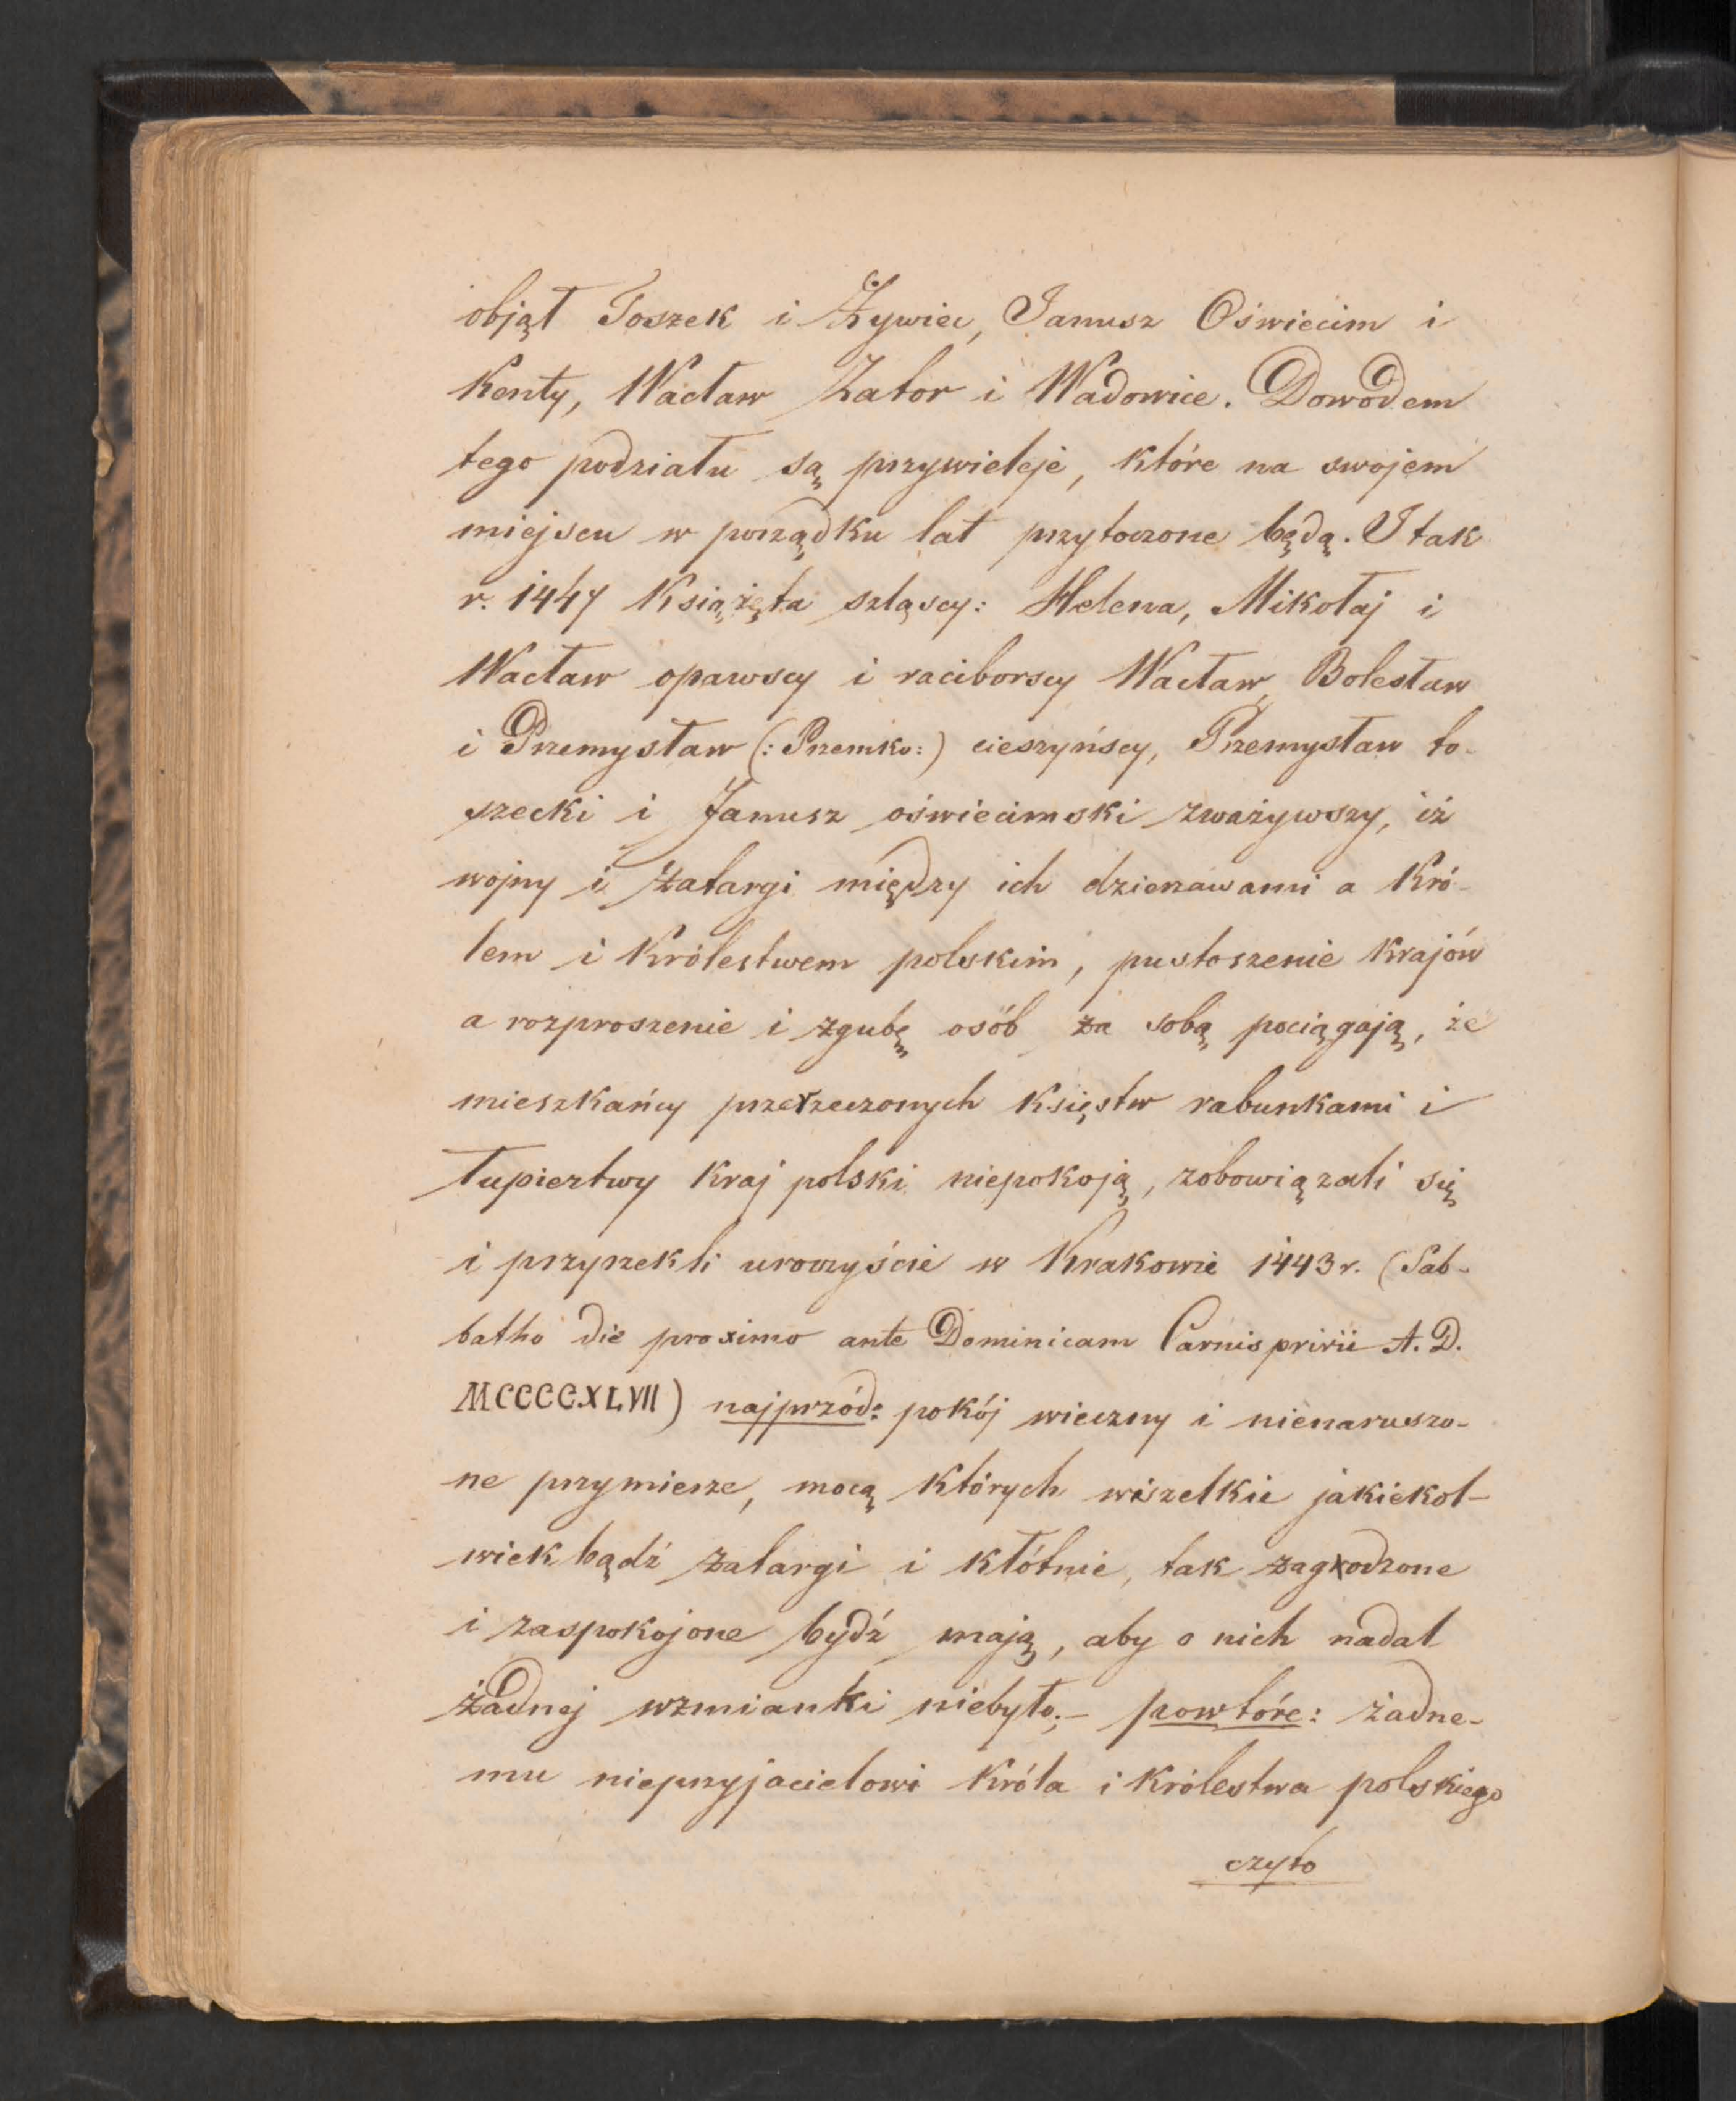 objął Toszek i Żywiec, Janusz Oświecim i
Kenty, Wacław Zator i Wadowice. Dowodem
tego podziału są przywieleje, które na swojem
miejscu w porządku lat przytoczone będą. I tak
r. 1447 Książęta szląscy: Helena, Mikołaj i
Wacław opawscy i raciborscy Wacław, Bolesław
i Przemysław (: Przemko:) cieszyńscy, Przemysław to-
szecki i Janusz oświecimski zważywszy, iż
wojny i zatargi między ich dzierzawami a Kró-
lem i Królestwem polskim, pustoszenie krajów
a rozproszenie i zgubę osób za sobą pociągają, że
mieszkańcy przerzeczonych księstw rabunkami i
łupieztwy kraj polski niepokoją, zobowiązali się
i przyrzekli uroczyście w Krakowie 1443 r. (Sab-
batho die proximo ante Dominicam Carnisprivii A. D.
MCCCCXLVII) najprzód: pokój wieczny i nienaruszo-
ne przymierze, mocą których wszelkie jakiekol-
wiek bądź zatargi i kłótnie, tak zagrodzone
i zaspokojone bydź mają, aby o nich nadal
żadnej wzmianki niebyło;- powtóre: żadne-
mu nieprzyjacielowi Króla i Królestwa polskiego
czyto